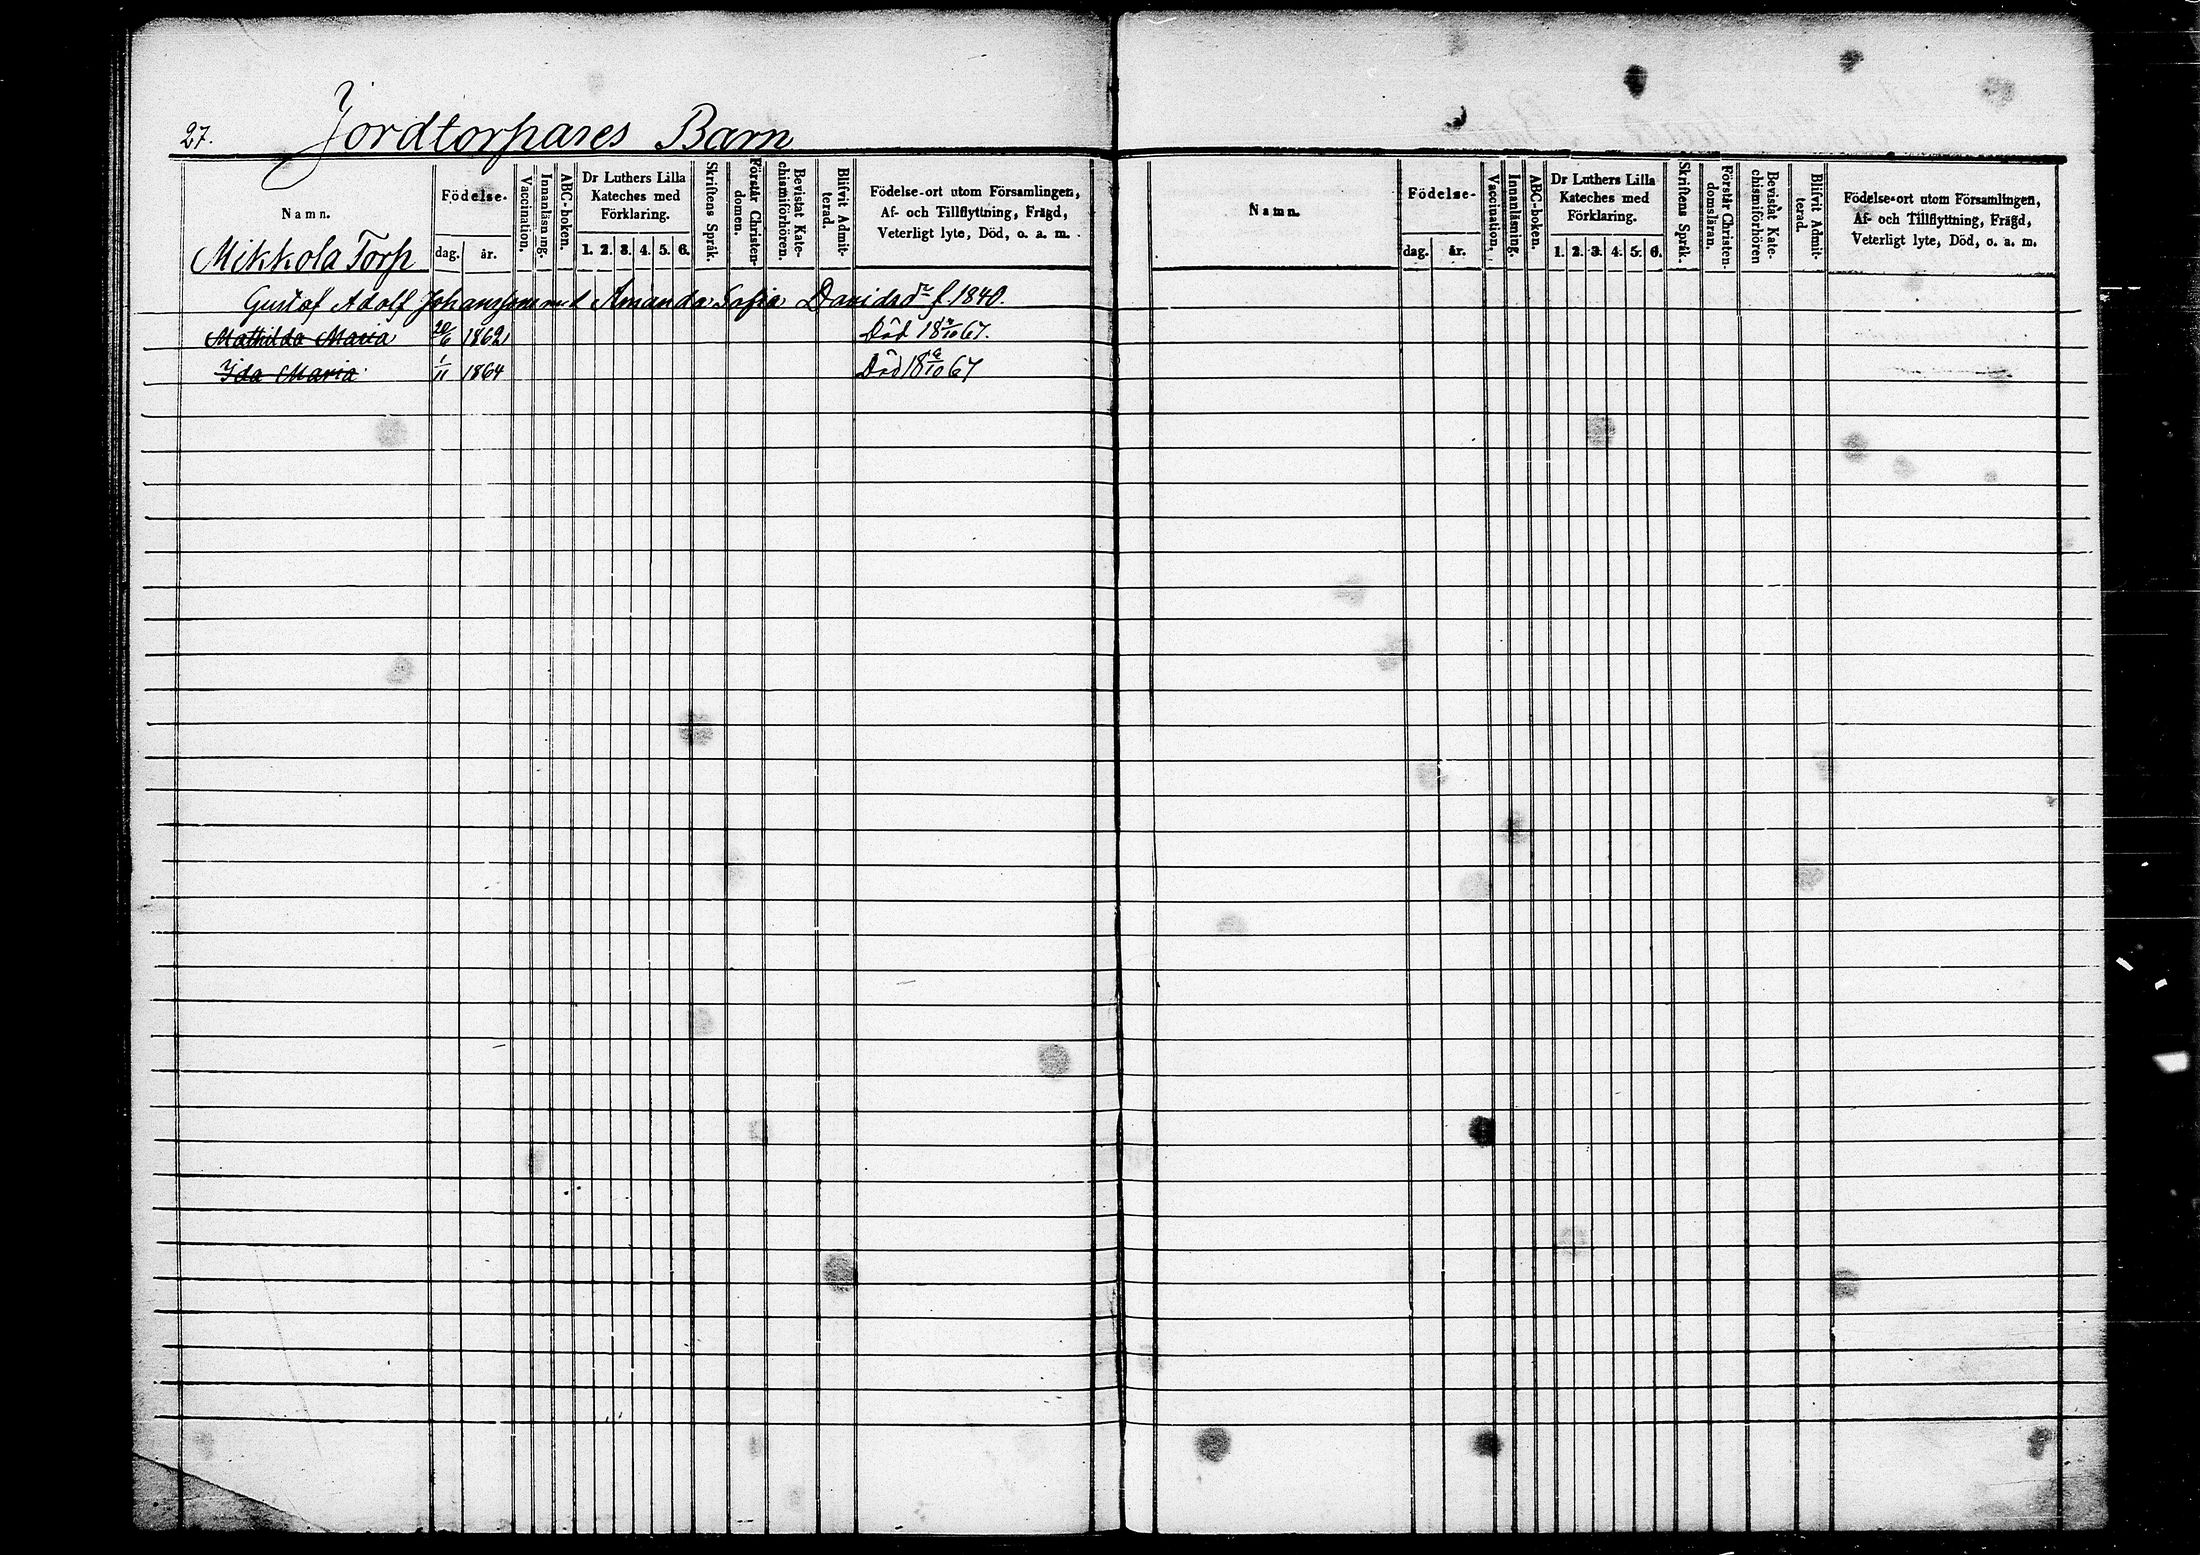 27. Jordtorpares Barn
Namn.
Mikkola Torp
Födelse-
dag. år.
Vaccination.
Innanläsning.
ABC-boken.
Dr Luthers Lilla
Kateches med
Förklaring.
1. 2. 3. 4. 5. 6.
Skriftens Språk.
Förstår Christen-
domen.
Bevistat Kate-
chismiförhören.
Blifvit Admit-
terad.
Födelse-ort utom Församlingen,
Af- och Tillflyttning, Frägd,
Veterligt lyte, Död, o. a. m.
Gustaf Adolf Johansson med Amanda Sofia Davidsdr f. 1840.
Mathilda Maria 20/6 1862 Död 18 /10 67.
Ida Maria 1/11 1864 Död 18 9/10 67
Namn.
Födelse-
dag. år.
Vaccination.
Innanläsning.
ABC-boken.
Dr Luthers Lilla
Kateches med
Förklaring.
1. 2. 3. 4. 5. 6.
Skriftens Språk.
Förstår Christen-
domsläran.
Bevistat Kate-
chismiförhören
Blifvit Admit-
terad.
Födelse-ort utom Församlingen,
Af- och Tillflyttning, Frägd,
Veterligt lyte, Död, o. a. m.